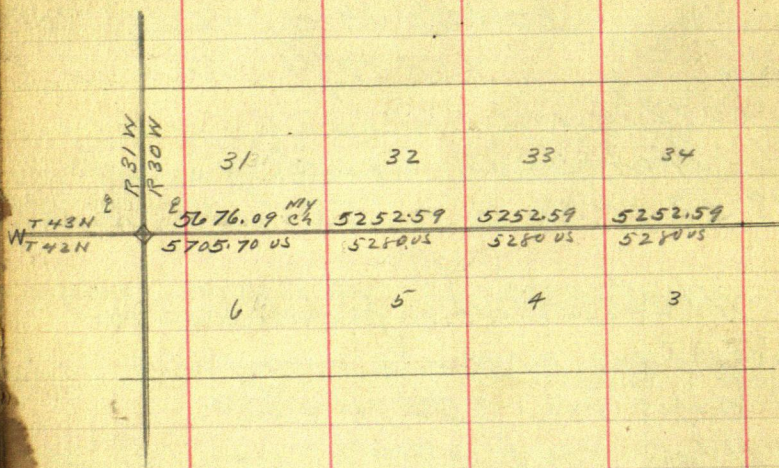 R31W
R30W
31 32 33 34
T43N 5676.09 My Ch 5252.59 5252.59 5252.59
W
T42N 5705.70 US 5280 US 5280 US 5280 US
6 5 4 3